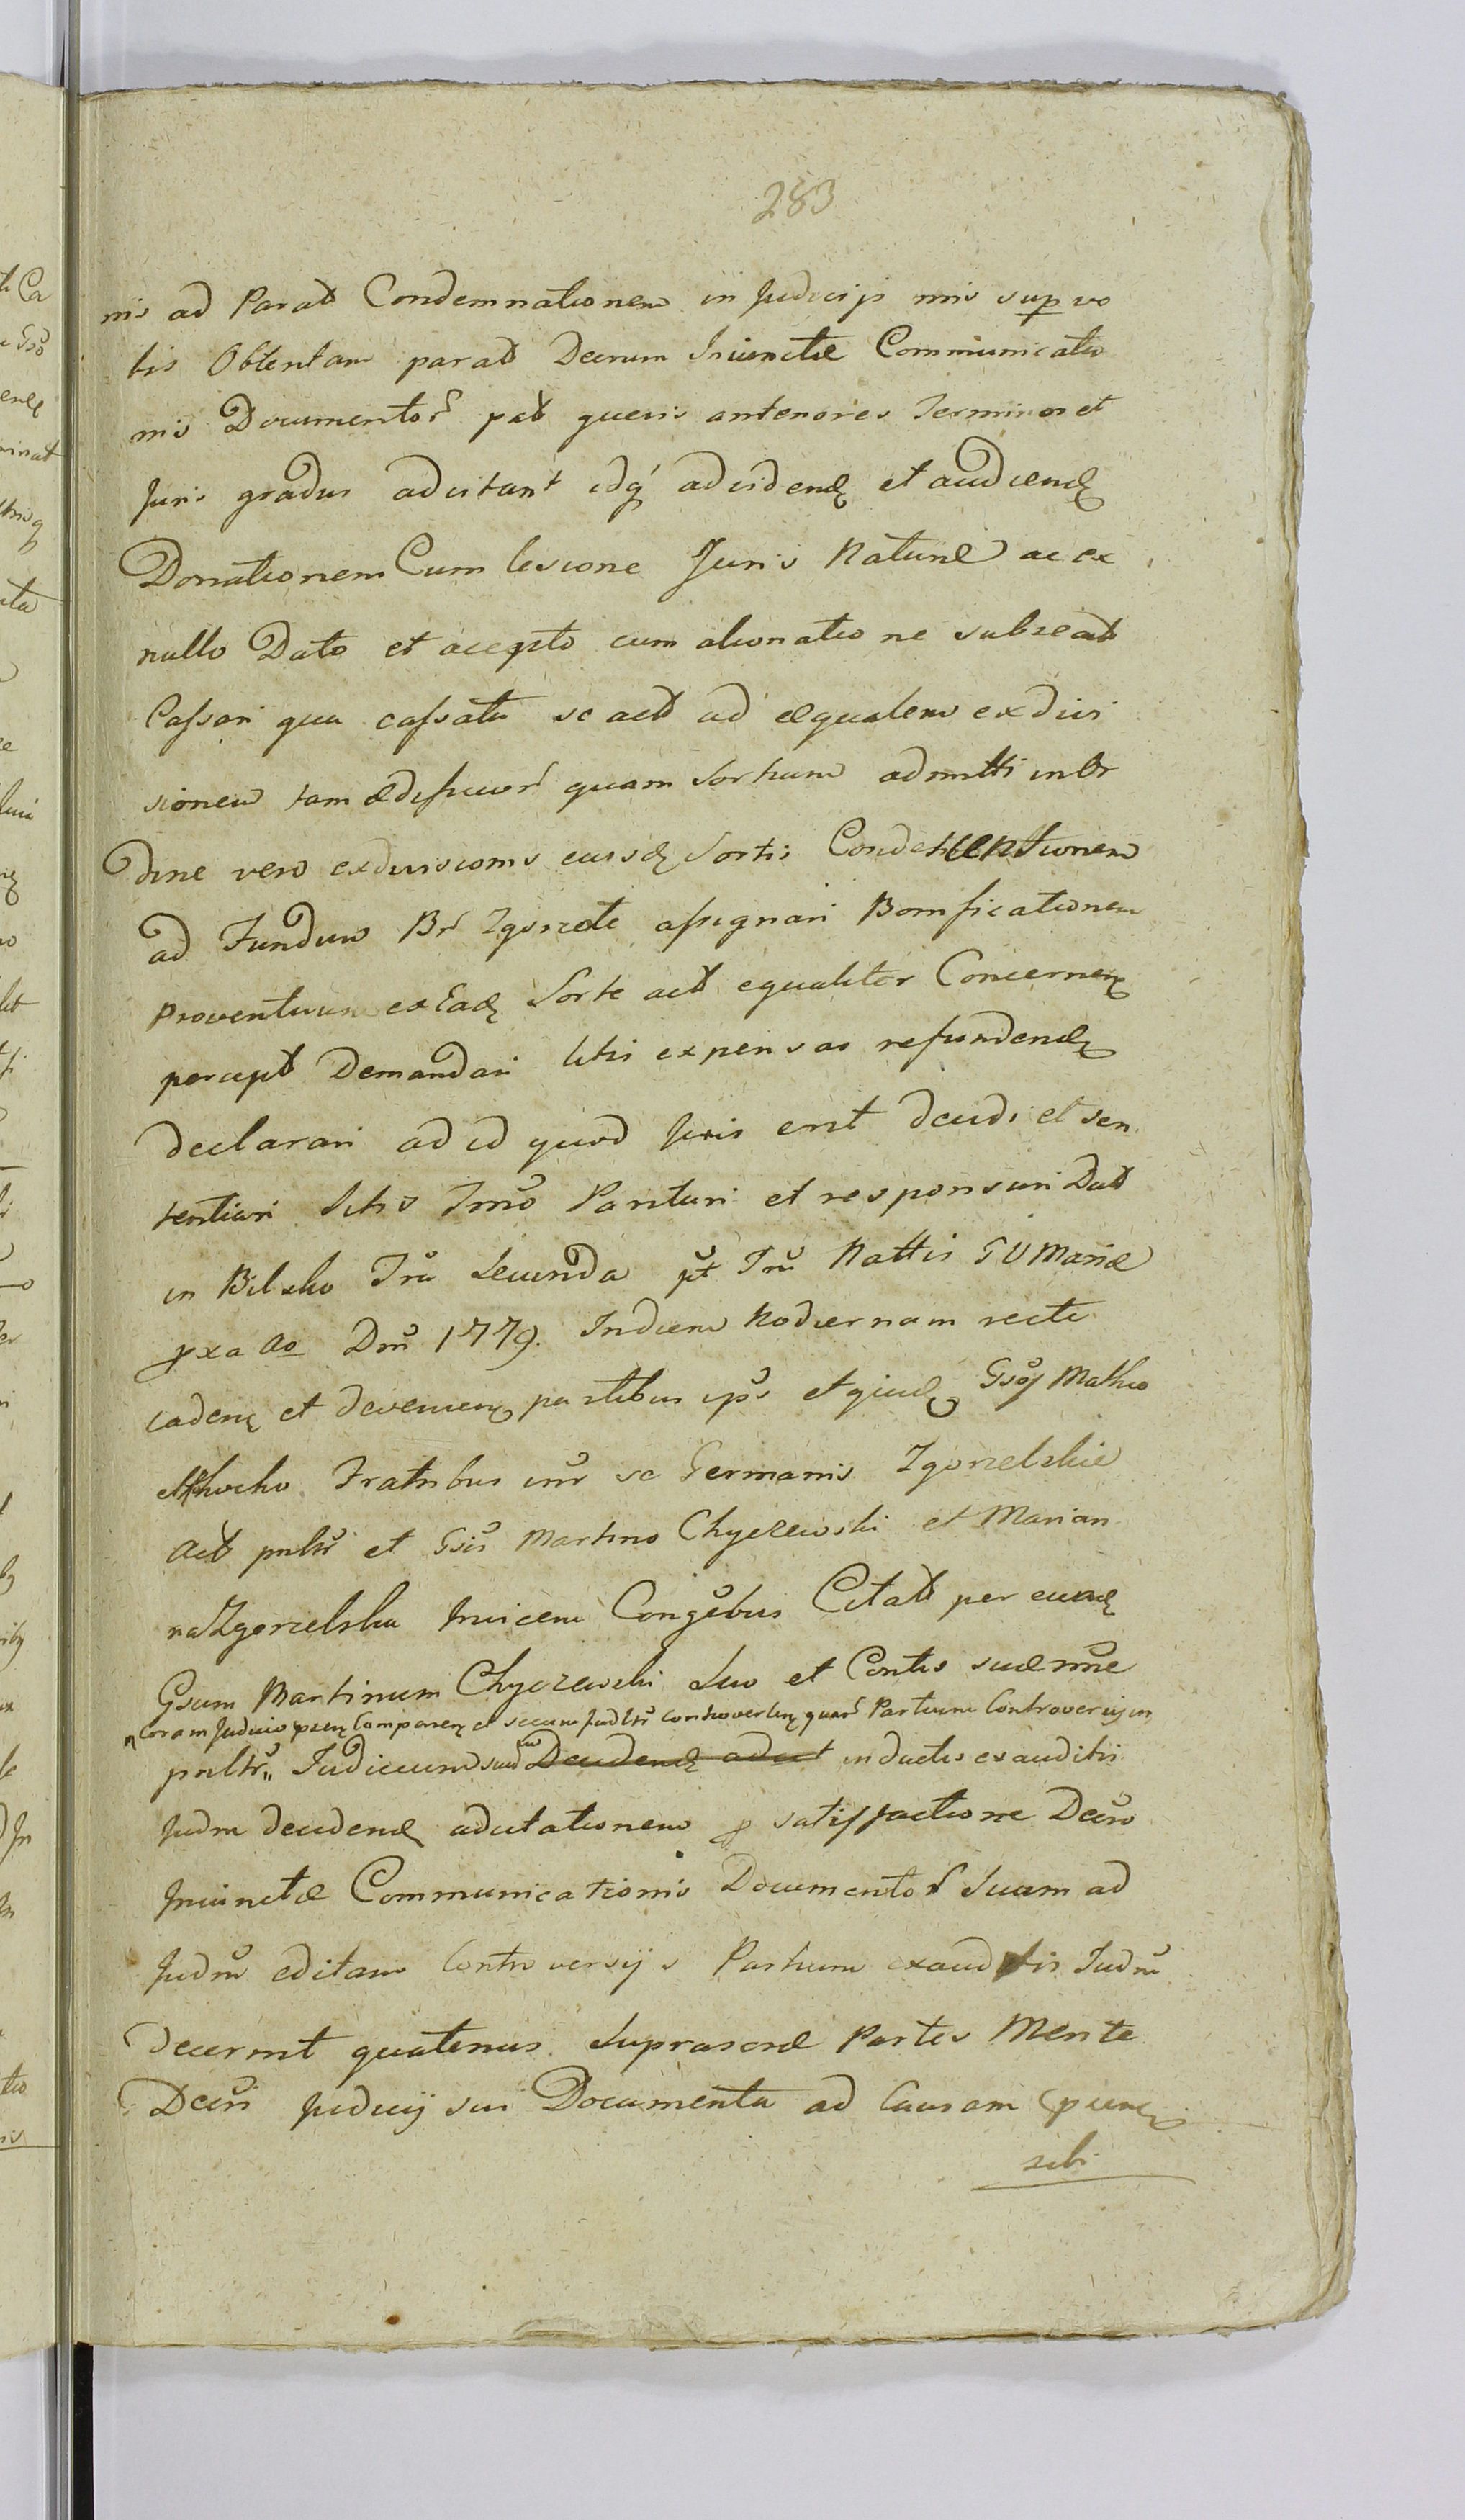 283
nis ad Parat Condemnationem in Judicijs mis sup vo
bis Obtentam parat Decrum Iniunctæ Communicatio
nis Documentor pat quevis anteriores Terminos et
Juris gradus adcitant idq adcidend et audiend
Donationem Cum lesione Juris Naturæ ac ex
nullo Dato et acepto cum alionatio ne subseat
Cassari qua cassata se act ad æqualem exdivi
sionem tam ædificior quam Sortium admitti in Or
dine vero exdivisionis eiusd Sortis Condescensionem
ad Fundum Br Zgorzele assignari Bonificationem
Proventuum ex Ead Sorte act equaliter Concernen
percept Demandari litis expensas refundend
declarari ad id quod Juris erit decidi et sen
tentiari Sitis Trmo Parituri et responsuri Dat
in Bilsko Fra Secunda pt Fm Nattis G V Mariæ
pxa Ao Dni 1779. In diem Hodiernam recte
caden et devenien partibus ips et quid Gsoj Matheo
et Rocho Fratribus inr se Germanis Zgorzelskie
Act pnltr et Gsis Martino Chyczewski et Marian
na Zgorzelska Invicem Congibus Citat per eund
Gsum Martinum Chyczewski Suo et Contis suæ nine
coram Judicio psen Comparen et secum Judltr controverten quar Partium Controversijs in
pnltr Judicium suu Decidend adcit inductis exauditis
Judm decidend adcitationem p satisfactione Decro
Iniunctæ Communicationis Documentor Suam ad
Judm editam Controversijs Partium exauditis Judm
Decernit quatenus Suprascrae Partes Mente
Decri Judicij sui Documenta ad Causam psen
sibi